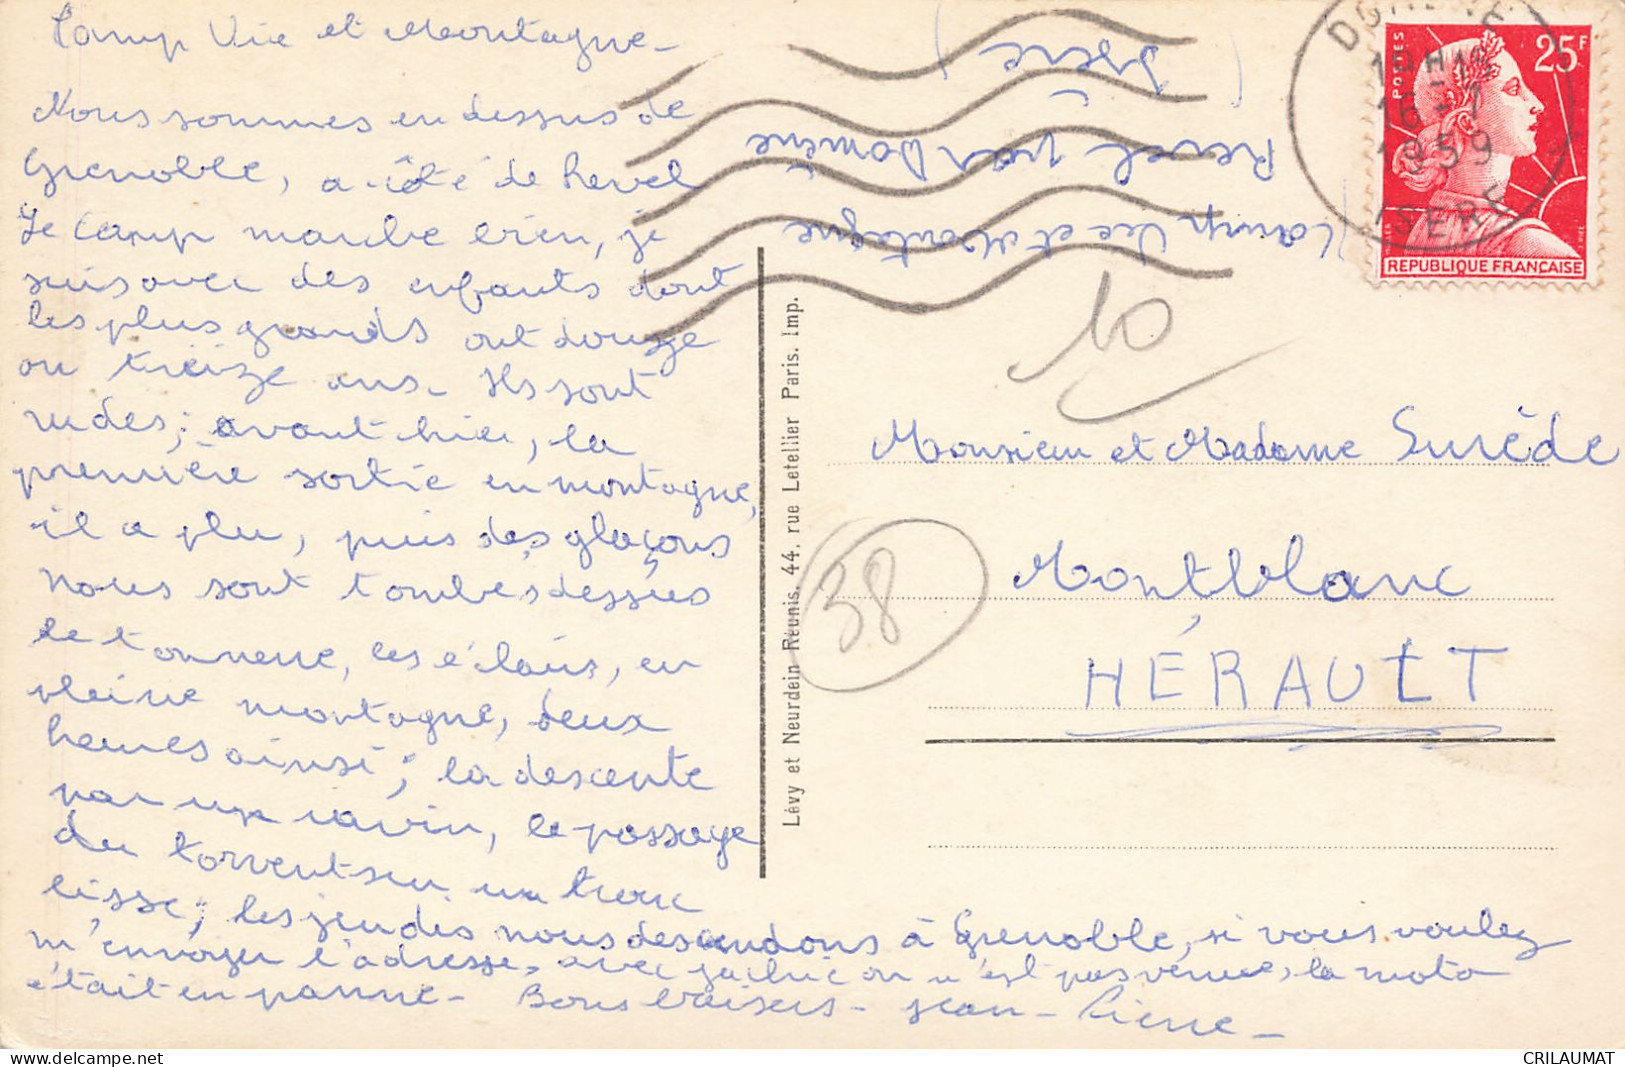 Camp Vie et Montagne -
Nous sommes en dessus de
Grenoble, a côté de Revel
Le camp marche bien, je
suis avec des enfants dont
les plus grands ont douze
ou treize ans - Ils sont
rudes; avant hier, la
première sortie en montagne,
il a plu, puis des glaçons
nous sont tombés dessus
le tonnerre, les éclairs, en
pleine montagne, deux
heures ainsi; la descente
par un ravin, le passage
du torrent sur un tronc
lisse; les jeudis nous descendons à Grenoble, si vous voulez
m'envoyer l'adresse, avec on n'est pas venus, la moto
était en panne - Bons baisers - Jean-Pierre -
(Camp Vie et Montagne
Revel par Domène
(Isère)
DOMÈNE
19H15
16 - 7
1959
ISÈRE
POSTES
25F
REPUBLIQUE FRANÇAISE
10
38
Monsieur et Madame Surède
Montblanc
HÉRAULT
Lévy et Neurdein Réunis, 44, rue Letellier Paris. Imp.
Visitez www.delcampe.net
CRILAUMAT